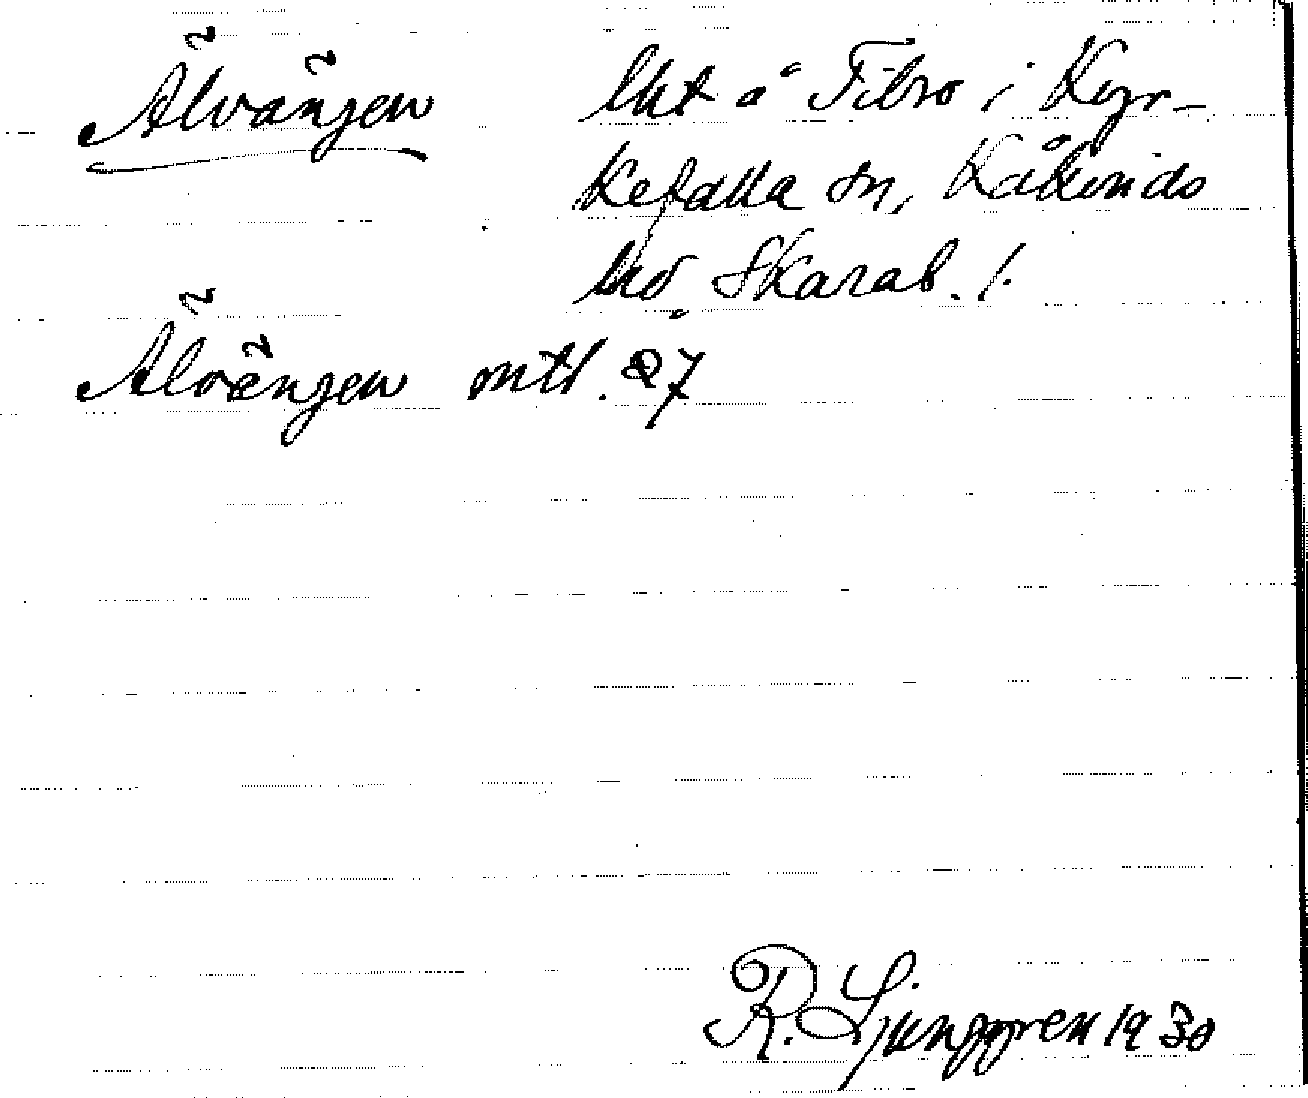 Älvängen lht å Fibro i Kyr-
kefalla sn, Kåkinds
hd Skarab. l.
Älvängen mtl. 27
R. Ljunggren 1930